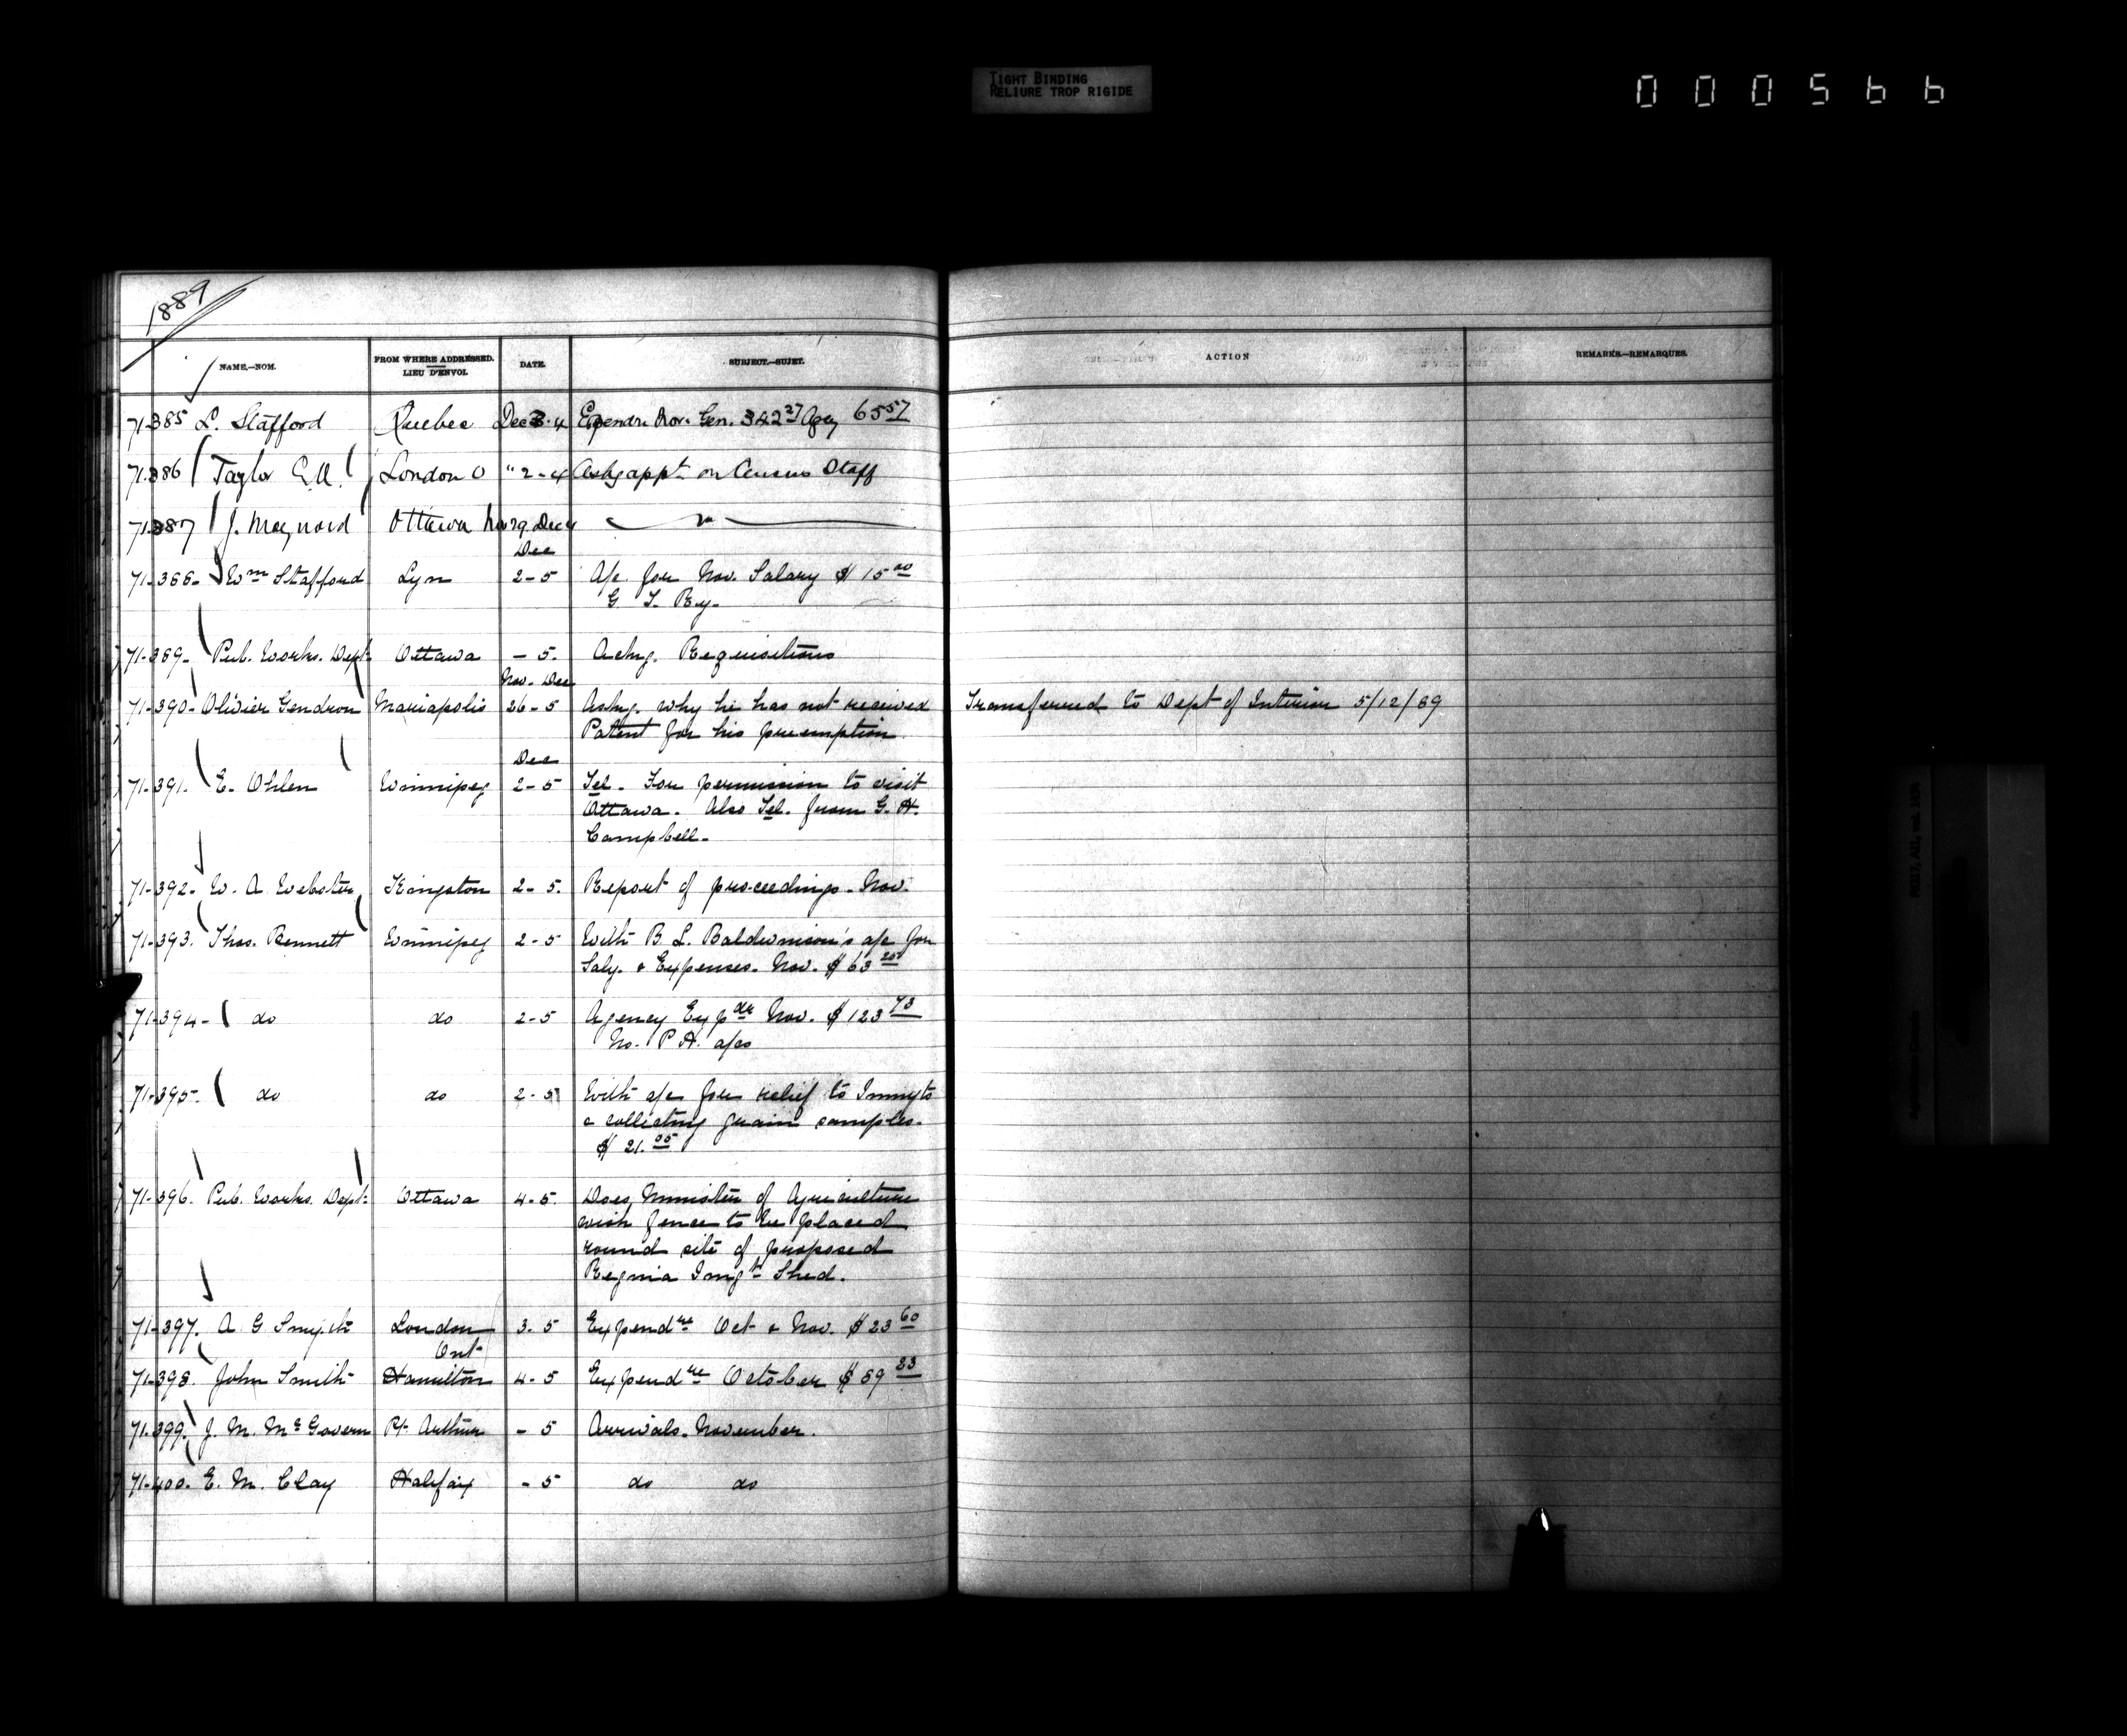 TIGHT BINDING
RELIURE TROP RIGIDE
000566
1889
NAME.—NOM. FROM WHERE ADDRESSED. LIEU D'ENVOI. DATE. SUBJECT.—SUJET. ACTION REMARKS.—REMARQUES.
71385 L. Stafford Quebec Dec 3-4 Expendre Nov. Gen. 342 27 Agcy 65 57
71386 Taylor London O " 2-4 Askg appt on Census Staff
71387 J. Maynard Ottawa Nov 29 Dec 4 "
Dec
71-388- Wm Stafford Lyn 2-5 A/c for Nov. Salary $15 00
G T. Ry-
71-389- Pub. Works. Dept. Ottawa - 5. Ackg. Requisitions
Nov. Dec
71-390- Olivier Gendron Mariapolis 26-5 Askg. why he has not received Transferred to Dept of Interior 5/12/89
Patent for his preemption
Dec
71-391- E. Ohlen Winnipeg 2-5 Tel. For permission to visit
Ottawa. Also Tel. from G. H.
Campbell-
71-392- W. A. Webster Kingston 2-5. Report of proceedings. Nov.
71-393. Thos. Bennett Winnipeg 2-5 With B. L. Baldwinson's a/c for
Saly. & Expenses. Nov. $63 25
71-394- do do 2-5 Agency Expdre Nov. $123 73
No. P. H. a/cs
71-395- do do 2-5 With a/c for relief to Immgts
& collecting grain samples.
$21.05
71-396. Pub. Works. Dept. Ottawa 4-5. Does Minister of Agriculture
wish fence to be placed
round site of proposed
Regina Imgt Shed.
71-397. A G Smyth London 3-5 Expendre Oct & Nov. $23 60
Ont-
71-398. John Smith Hamilton 4-5 Expendre October $89 83
71-399. J. M. McGovern Pt. Arthur - 5 Arrivals. November.
71-400. E. M. Clay Halifax - 5 do do